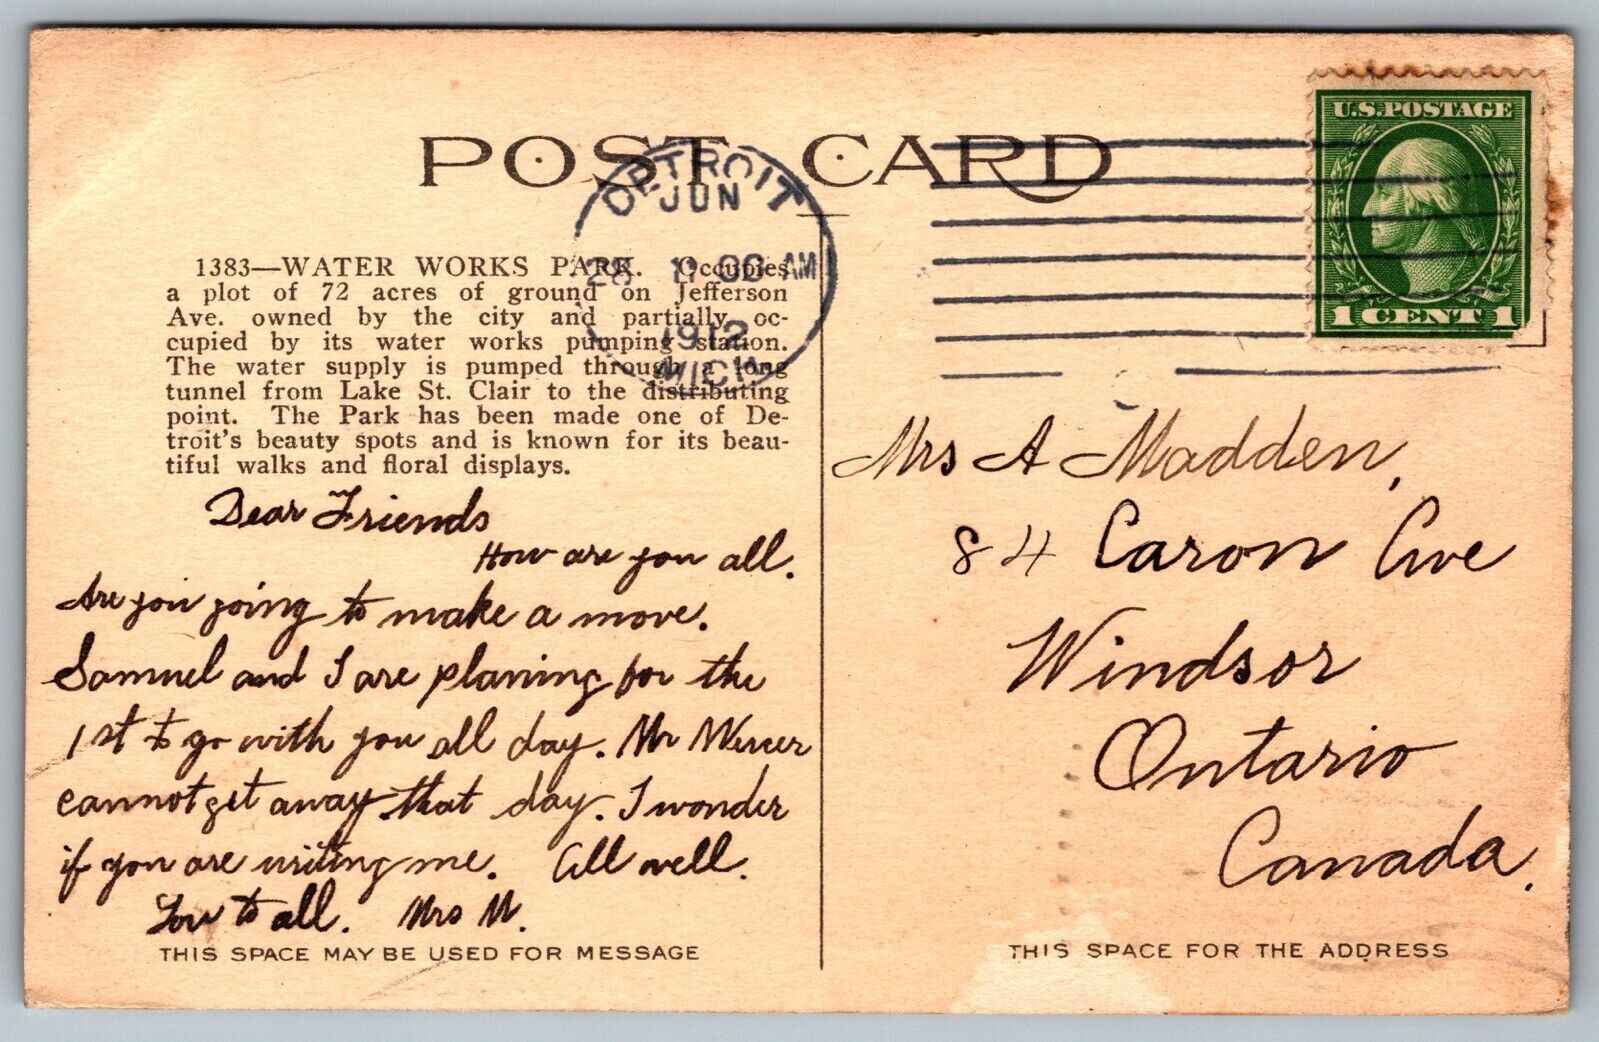 POST CARD
DETROIT
JUN
28 11 00 AM
1912
MICH
U.S. POSTAGE
1 CENT 1
1383—WATER WORKS PARK. Occupies
a plot of 72 acres of ground on Jefferson
Ave. owned by the city and partially oc-
cupied by its water works pumping station.
The water supply is pumped through a long
tunnel from Lake St. Clair to the distributing
point. The Park has been made one of De-
troit's beauty spots and is known for its beau-
tiful walks and floral displays.
Dear Friends
How are you all.
Are you going to make a move.
Samuel and I are planing for the
1st to go with you all day. Mr Mercer
cannot get away that day. I wonder
if you are writing me. All well.
Love to all. Mrs M.
THIS SPACE MAY BE USED FOR MESSAGE
Mrs A Madden,
84 Caron Ave
Windsor
Ontario
Canada.
THIS SPACE FOR THE ADDRESS